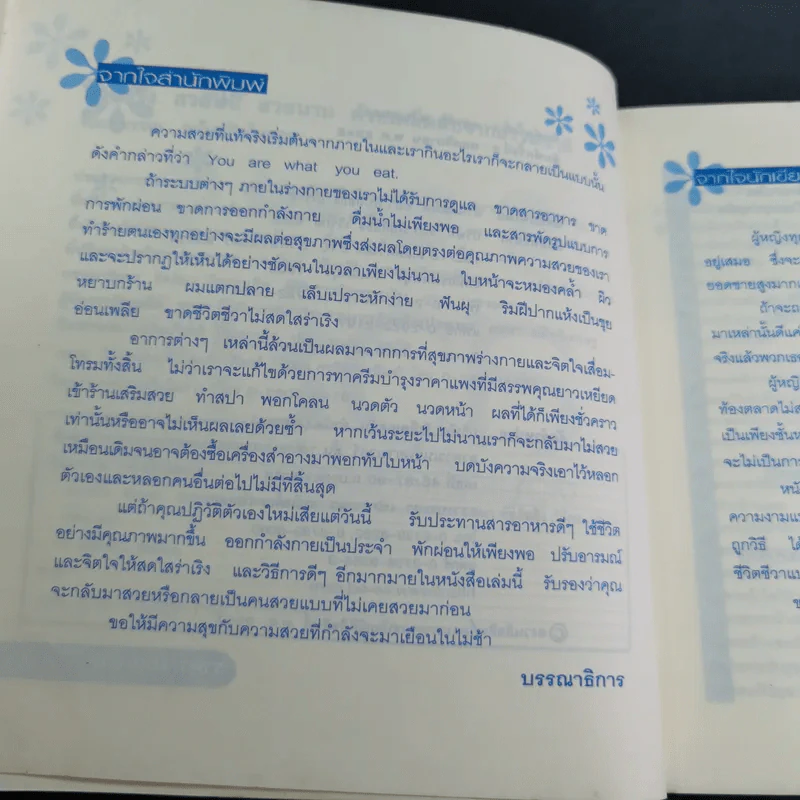 จากใจสำนักพิมพ์
ความสวยที่แท้จริงเริ่มต้นจากภายในและเรากินอะไรเราก็จะกลายเป็นแบบนั้น
ดังคำกล่าวที่ว่า You are what you eat.
ถ้าระบบต่างๆ ภายในร่างกายของเราไม่ได้รับการดูแล ขาดสารอาหาร ขาด
การพักผ่อน ขาดการออกกำลังกาย ดื่มน้ำไม่เพียงพอ และสารพัดรูปแบบการ
ทำร้ายตนเองทุกอย่างจะมีผลต่อสุขภาพซึ่งส่งผลโดยตรงต่อคุณภาพความสวยของเรา
และจะปรากฏให้เห็นได้อย่างชัดเจนในเวลาเพียงไม่นาน ใบหน้าจะหมองคล้ำ ผิว
หยาบกร้าน ผมแตกปลาย เล็บเปราะหักง่าย ฟันผุ ริมฝีปากแห้งเป็นขุย
อ่อนเพลีย ขาดชีวิตชีวาไม่สดใสร่าเริง
อาการต่างๆ เหล่านี้ล้วนเป็นผลมาจากการที่สุขภาพร่างกายและจิตใจเสื่อม-
โทรมทั้งสิ้น ไม่ว่าเราจะแก้ไขด้วยการทาครีมบำรุงราคาแพงที่มีสรรพคุณยาวเหยียด
เข้าร้านเสริมสวย ทำสปา พอกโคลน นวดตัว นวดหน้า ผลที่ได้ก็เพียงชั่วคราว
เท่านั้นหรืออาจไม่เห็นผลเลยด้วยซ้ำ หากเว้นระยะไปไม่นานเราก็จะกลับมาไม่สวย
เหมือนเดิมจนอาจต้องซื้อเครื่องสำอางมาพอกทับใบหน้า บดบังความจริงเอาไว้หลอก
ตัวเองและหลอกคนอื่นต่อไปไม่มีที่สิ้นสุด
แต่ถ้าคุณปฏิวัติตัวเองใหม่เสียแต่วันนี้ รับประทานสารอาหารดีๆ ใช้ชีวิต
อย่างมีคุณภาพมากขึ้น ออกกำลังกายเป็นประจำ พักผ่อนให้เพียงพอ ปรับอารมณ์
และจิตใจให้สดใสร่าเริง และวิธีการดีๆ อีกมากมายในหนังสือเล่มนี้ รับรองว่าคุณ
จะกลับมาสวยหรือกลายเป็นคนสวยแบบที่ไม่เคยสวยมาก่อน
ขอให้มีความสุขกับความสวยที่กำลังจะมาเยือนในไม่ช้า
บรรณาธิการ
จากใจนักเขีย
ผู้หญิงทุ
อยู่เสมอ ซึ่งจะ
ยอดขายสูงมาก
ถ้าจะถ
มาเหล่านั้นดีแค่
จริงแล้วพวกเธ
ผู้หญิ
ท้องตลาดไม่ส
เป็นเพียงชั้นห
จะไม่เป็นการ
หนั
ความงามแ
ถูกวิธี ได้
ชีวิตชีวาแบ
ข